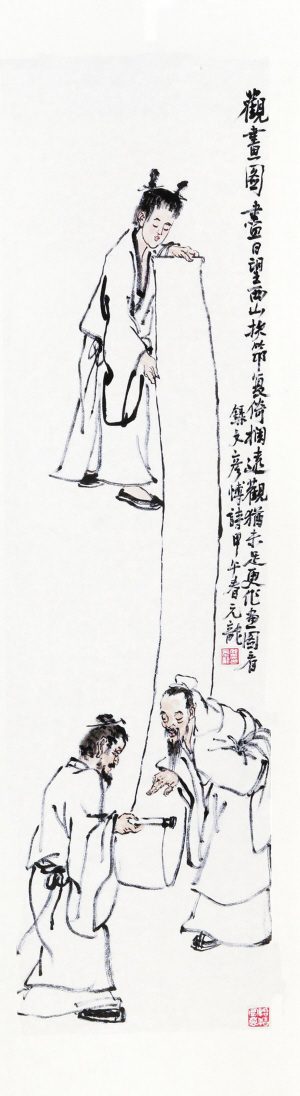 觀畫圖 盡日望西山扶筇复倚欄遠觀猶未足更作画圖看
錄文彥博詩甲午春元龍